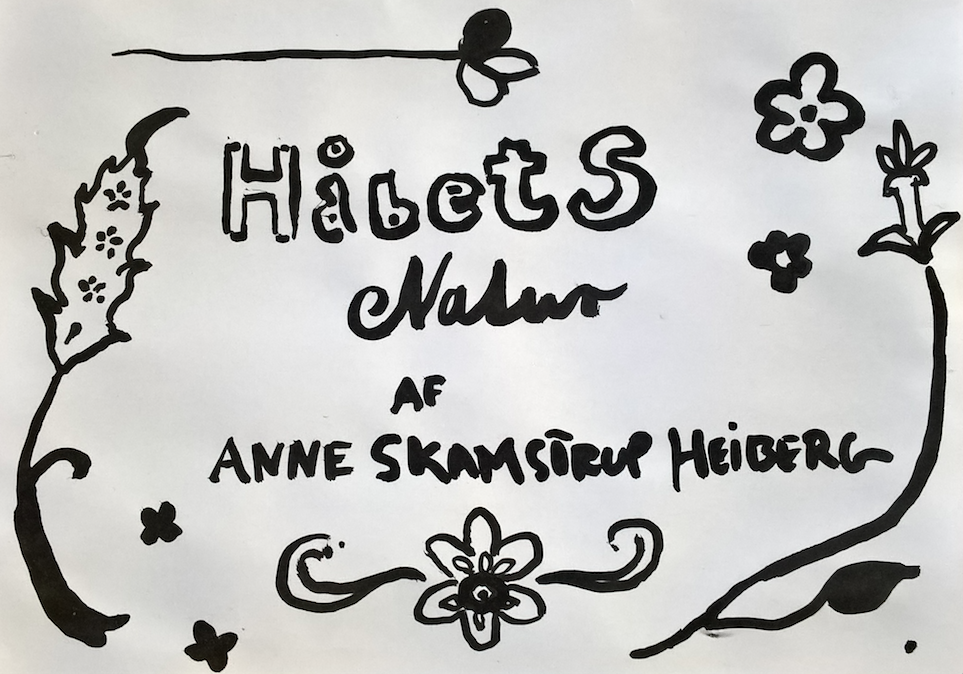 HåbetS
Natur
AF
ANNE SKAMSTRUP HEIBERG